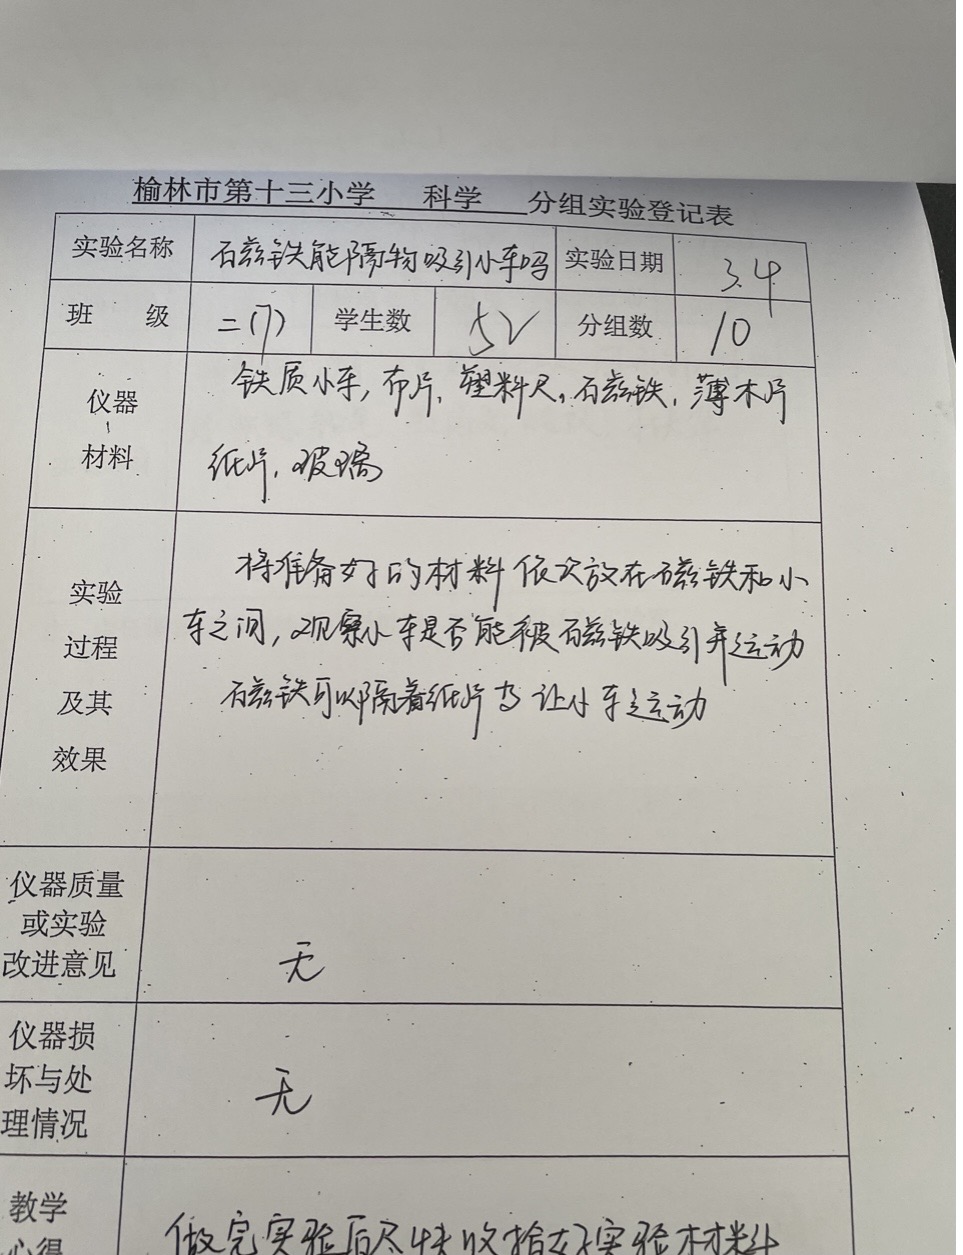 榆林市第十三小学 科学 分组实验登记表
实验名称 磁铁能隔物吸引小车吗 实验日期 3.4
班 级 二(7) 学生数 52 分组数 10
仪器材料 铁质小车,布片,塑料尺,磁铁,薄木片
纸片,玻璃
实验过程及其效果 将准备好的材料依次放在磁铁和小
车之间,观察小车是否能被磁铁吸引并运动
磁铁可以隔着纸片 让小车运动
仪器质量或实验改进意见 无
仪器损坏与处理情况 无
教学心得 做完实验后尽快收拾好实验材料